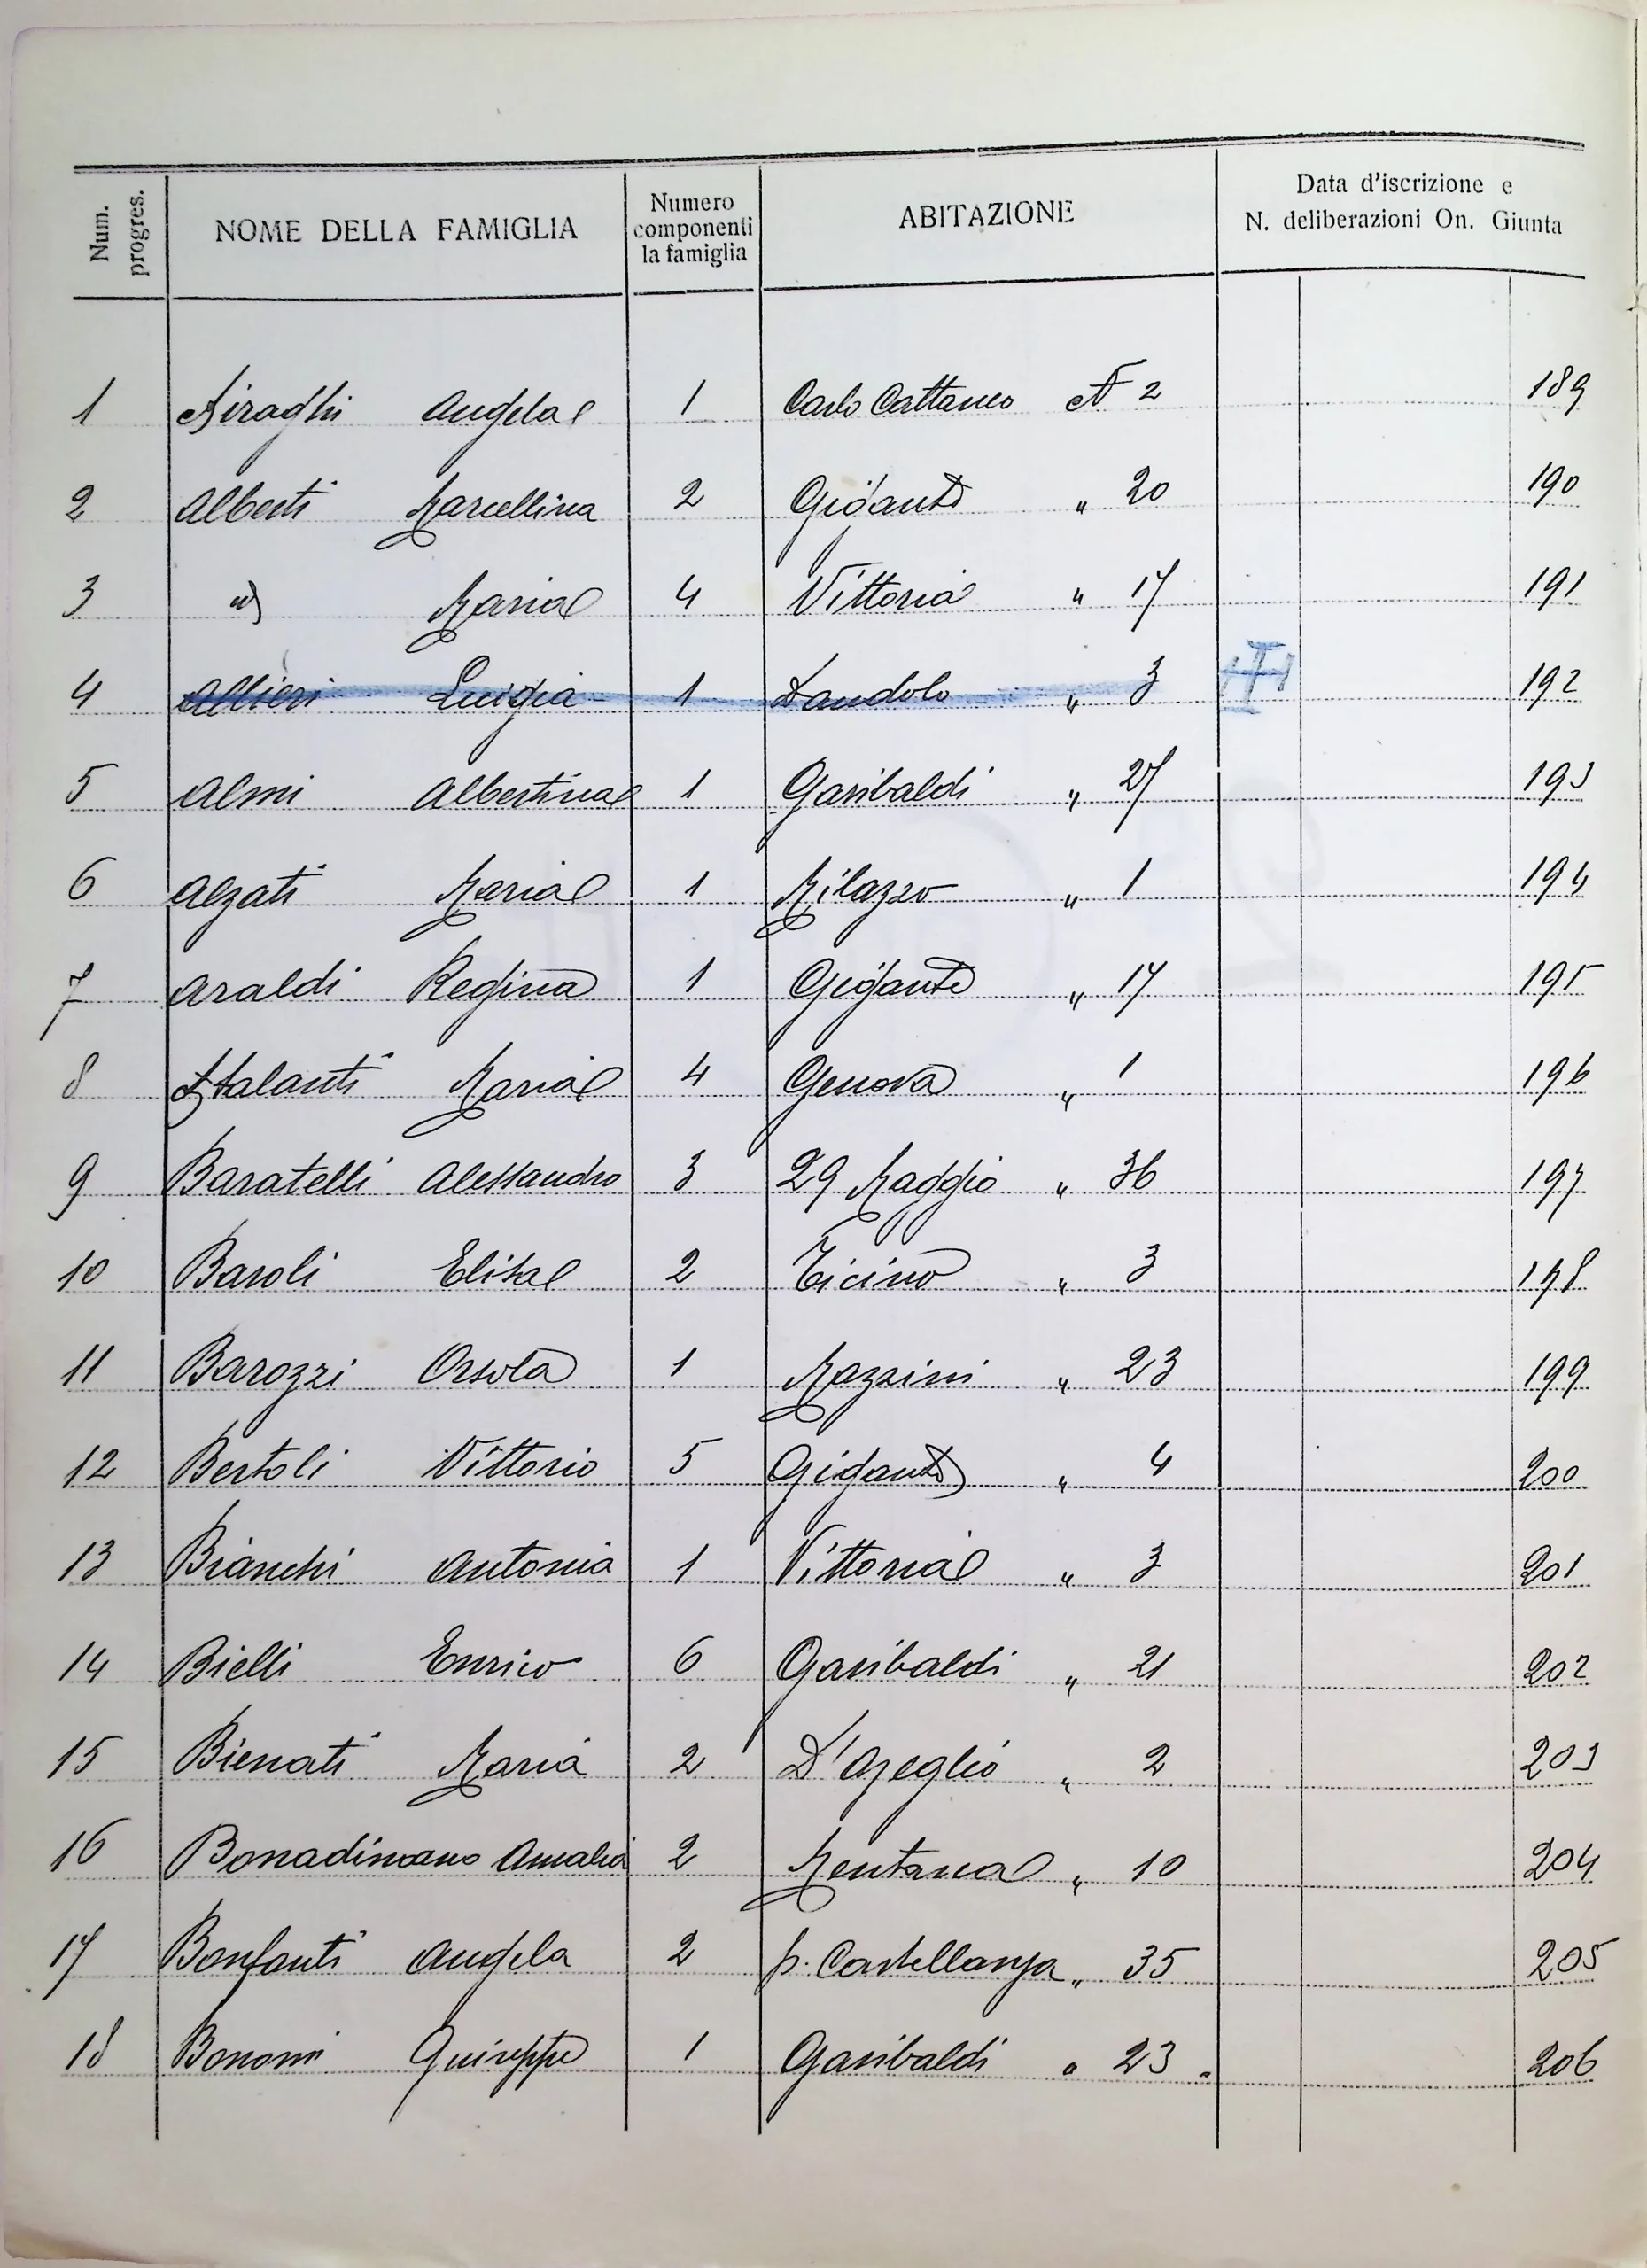 Num. progres.
NOME DELLA FAMIGLIA
Numero componenti la famiglia
ABITAZIONE
Data d'iscrizione e
N. deliberazioni On. Giunta
1 Airaghi Angela 1 Carlo Cattaneo N 2 189
2 Alberti Marcellina 2 Gigante " 20 190
3 id Maria 4 Vittoria " 17 191
4 Allieri Luigia 1 Dandolo " 3 192
5 Almi Albertina 1 Garibaldi " 27 193
6 Alzati Maria 1 Milazzo " 1 194
7 Araldi Regina 1 Gigante " 17 195
8 Attalanti Maria 4 Genova " 1 196
9 Baratelli Alessandro 3 29 Maggio " 36 197
10 Baroli Elisa 2 Ticino " 3 198
11 Barozzi Orsola 1 Mazzini " 23 199
12 Bertoli Vittorio 5 Gigante " 4 200
13 Bianchi Antonia 1 Vittoria " 3 201
14 Bielli Enrico 6 Garibaldi " 21 202
15 Bienati Maria 2 D'Azeglio " 2 203
16 Bonadimano Amalia 2 Mentana " 10 204
17 Bonfanti Angela 2 p. Castellanza " 35 205
18 Bonomi Giuseppe 1 Garibaldi " 23. 206